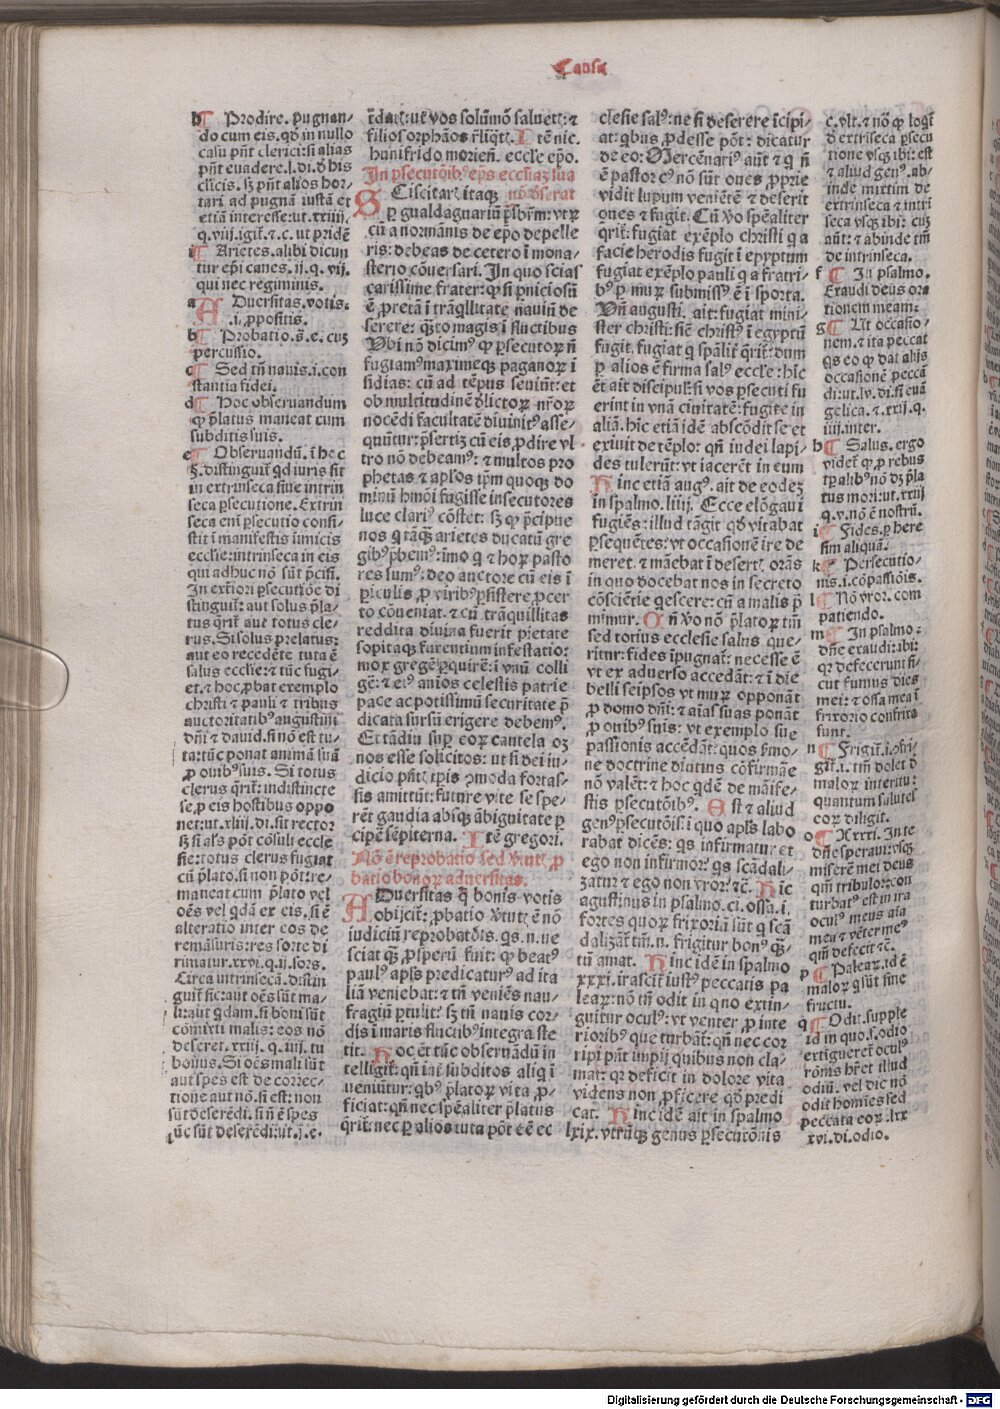 Causa
b ¶ Prodire. pugnan⸗
do cum eis. qđ in nullo
casu pñt clerici: si alias
pñt euadere. l. di. đ his
cłicis. sꝫ pñt alios hor⸗
tari ad pugnā iustā et
etiā interesse: ut. xxiii.
q. viii. igit̃. ⁊. c. ut pridē
¶ Arietes. alibi dicun
tur epi canes. ii. q. vij.
qui nec regiminis.
a Aduersitas. votis.
.i. ꝓpositis.
b ¶ Probatio. s̃. e. cuꝫ
percussio.
c ¶ Sed tñ nauis. i. con
stantia fidei.
d ¶ Hoc obseruandum
ꝙ p̃latus maneat cum
subditis suis.
e ¶ Obseruandū. i hec
§. distinguit̃ qđ iuris sit
in extrinseca siue intrin
seca persecutione. Extrin
seca eni p̃secutio consi⸗
stit i manifestis inimicis
ecclie: intrinseca in eis
qui adhuc nō sūt p̃cisi.
In ext̃iori p̃secutiōe di
stinguit̃: aut solus p̃la⸗
tus q̃rit̃ aut totus cle⸗
rus. Si solus prelatus:
aut eo recedēte tuta ē
salus ecclie: ⁊ tūc fugi⸗
et. ⁊ hoc ꝓbat exemplo
christi ⁊ pauli ⁊ tribus
auctoritatibꝰ augustini
dñi ⁊ dauid. si nō est tu⸗
ta: tūc ponat animā suā
ꝓ ouibꝰ suis. Si totus
clerus q̃rit̃: indistincte
se. ꝓ eis hostibus oppo
net: ut. xliij. di. sit rector
ꝫ si alꝰ pōt cōsuli eccle
sie: totus clerus fugiat
cū p̃lato. si non pōt: re⸗
maneat cum p̃lato vel
oēs vel qđā ex eis. si ē
alteratio inter eos de
remāsuris: res sorte di
rimatur. xxvi. q. ij. sors.
Circa intrinsecā. distin
guit̃ sic: aut oēs sūt ma⸗
li: aut qđam. si boni sūt
cōmixti malis: eos nō
deseret. xxiii. q. iiij. tu
bonus. Si oēs mali sūt
aut spes est de correc⸗
tione aut nō. si est: non
sūt deserēdi. si ñ ē spes
tūc sūt deserēdi: ut. j. e.
t̃datꝭ: ut̃ vos solūmō saluetꝭ: ⁊
filios orphāos r̃liq̃tꝭ. Itē nic.
hunifrido morien̄. eccl̃e ep̃o.
In ꝑsecutōibꝰ eps ecclīaꝫ sua
nō đserat
Sciscitarꝭ itaqꝫ
ꝑ gualdagnariū p̃sbr̃m: vtꝝ
cū a normānis de epo depelle
ris: debeas de cetero ī mona⸗
sterio cōuersari. In quo scias
carissime frater: ꝙ si ꝑniciosū
ē ꝓretā ī trāq̃llitate nauim̄ de
serere: q̃̃to magis ī fluctibus
Ubi nō dicimꝰ ꝙ ꝑsecutoꝝ ñ
fugiamꝰ maximeqꝫ paganoꝝ ī
sidias: cū ad tēpus seuiūt: et
ob multitudinē đlictoꝝ nr̃oꝝ
nocēdi facultatē diuinitꝰ asse⸗
quūtur: p̃sertiꝫ cū eis ꝓdire vl
tro nō debeamꝰ: ⁊ multos pro
phetas ⁊ apl̃os ip̃m quoqꝫ do
minū hmōi fugisse insecutores
luce clariꝰ cōstet: sꝫ ꝙ p̃cipue
nos q̃ tāqꝫ arietes ducatū gre
gibꝰ p̃bemꝰ: īmo q ⁊ hoꝝ pasto
res sumꝰ: deo auctore cū eis ī
ꝑiculis ꝓ viribꝰ ꝑsistere ꝓcer
to cōueniat. ⁊ cū trāquillitas
reddita diuina fuerit pietate
sopitaqꝫ furentium infestatio:
mox gregē ꝑquirē: ī vnū colli
gē: ⁊ eiꝰ aīos celestis patrie
pace ac potissimū securitate p̃
dicata sursū erigere debemꝰ.
Et tādiu suꝑ eoꝝ cautela oꝫ
nos esse solicitos: ut si dei iu⸗
dicio pn̄tꝭ tp̄is ꝯmoda fortas⸗
sis amittūt: future vite se spe⸗
rēt gaudia absqꝫ ābiguitate ꝑ
cipē sēpiterna. Itē gregori.
Nō ē reprobatio sed v̓tutꝭ ꝓ
batio bonoꝝ aduersitas.
ADuersitas q̄ bonis votis
obijcit̃: ꝓbatio v̓tutꝭ ē nō
iudiciū reprobatōis. qs. n. ne
sciat qꝫ ꝓsperū fuit: ꝙ beatꝰ
paulꝰ apl̃s predicaturꝰ ad ita
liā veniebat: ⁊ tñ veniēs nau⸗
fragiū ꝑtulit: sꝫ tñ nauis cor⸗
dis ī maris fluctibꝰ integra ste
tit. Hoc ēt tūc obseruādū in
telligit̃: qñ īnī subditos aliq̄ i
ueniūtur: q̃bꝰ p̃latoꝝ vita ꝓ⸗
ficiat: qñ nec spēaliter p̃latus
q̃rit̃: nec ꝑ alios tuta pōt eē ec
clesie salꝰ: ne si deserere īcipi⸗
at: q̃bus ꝓdesse pōt: dicatur
de eo: Mercēnariꝰ aūt ⁊ q̄ ñ
ē pastor cꝰ nō sūt oues ꝓprie
vidit lupum veniētē ⁊ deserit
oues ⁊ fugit. Cū v̓o spēaliter
qrit̃: fugiat exēplo christi q̄ a
facie herodis fugit ī egyptum
fugiat exēplo pauli q̄ a fratri
bꝰ ꝑ muꝝ submissꝰ ē ī sporta.
Vñ augusti. ait: fugiat mini⸗
ster christi: sic̄ christꝰ ī egyptū
fugit. fugiat q̄ spālit̃ q̃rit̃: dum
ꝑ alios ē firma salꝰ eccl̃e: hic
ēt ait discipul̃: si vos ꝑsecuti fu
erint in vnā ciuitatē: fugite in
aliā. hic etiā idē abscōdit se et
exiuit de tēplo: qñ iudei lapi⸗
des tulerūt: vt iacerēt in eum
Hinc etiā augꝰ. ait de eodeꝫ
in spalmo. liiij. Ecce elōgaui
fugiēs: illud tāgit qđ vitabat
ꝑsequētes: vt occasionē ire de
meret. ⁊ māebat ī desertꝭ orās
in quo docebat nos in secreto
cōsciētie q̄escere: cū a malis p̄
mimur. Qñ v̓o nō p̃latoꝝ tm̄
sed totius ecclesie salus que⸗
ritur: fides īpugnat̃: necesse ē
vt ex aduerso accedāt: ⁊ ī die
belli seipsos vt muꝝ opponāt
ꝓ domo dñi: ⁊ aīas suas ponāt
ꝓ ouibꝰ suis: vt exemplo sue
passionis accēdāt: quos s̓mo⸗
ne doctrine diutius cōfirmāe
nō valēt: ⁊ hoc q̄dē de māife⸗
stis ꝑsecutōibꝰ. Est ⁊ aliud
genꝰ ꝑsecutōis: ī quo apl̃s labo
rabat dicēs: qs infirmatur et
ego non infirmor: qs scādali⸗
zatur ⁊ ego non vror: ⁊c̃. Hic
agustinus in psalmo. ci. ossa. i.
fortes quoꝝ frixoriā sūt q̄ scā
dalizāt̃ tm̄. n. frigitur bonꝰ q̃̃⸗
tū amat. Hinc idē in spalmo
xxxi. irascit̃ iustꝰ peccatis pa
leaꝝ: nō tñ odit in quo extin⸗
guitur oculꝰ: vt venter ꝓ inte
rioribꝰ que turbāt̃: qñ nec cor
ripi pñt impij quibus non cla⸗
mat: qꝛ deficit in dolore vita
videns non ꝓficere qđ predi
cat. Hinc idē ait in spalmo
lxix. vtrūqꝫ genus ꝑsecutōnis
c. vlt. ⁊ nō ꝙ loqt̃
đ extrinseca ꝑsecu
tione vsqꝫ ibi: est
⁊ aliud genꝰ. ab⸗
inde mixtim de
extrinseca ⁊ intri
seca vsqꝫ ibi: cuꝫ
aūt: ⁊ abinde tm̄
de intrinseca.
f ¶ In psalmo.
Exaudi deus ora
tionem meam:
g ¶ Ut occasio⸗
nem. ⁊ ita peccat
qs eo ꝙ dat alijs
occasionē peccā
di: ut. lv. di. si euā
gelica. ⁊. xxij. q.
iiij. inter.
h ¶ Salus. ergo
videt̃ ꝙ ꝓ rebus
tꝑalibꝰ nō đꝫ p̃la
tus mori: ut. xxiij
q. v. nō ē nostrū.
i ¶ Fides. ꝑ here
sim aliquā.
k ¶ Persecutio⸗
nis. i. cōpassiōis.
l ¶ Nō vror. com
patiendo.
m ¶ In psalmo:
dñe exaudi: ibi:
qꝛ defecerunt si⸗
cut fumus dies
mei: ⁊ ossa mea ī
frixorio confrixa
sunt.
n ¶ Frigit̃. i. afri⸗
git̃. i. tm̄ dolet đ
maloꝝ interitu:
quantum salutes
eoꝝ diligit.
o ¶ Xxxi. In te
dñe speraui: vsqꝫ
miserē mei deus
qm̃ tribulor: con
turbatꝰ est in ira
oculꝰ meus aīa
mea ⁊ vēter meꝰ
qm̃ defecit ⁊c̃.
p ¶ Paleaꝝ. id ē
maloꝝ q̄ sūt sine
fructu.
q ¶ Odit. supple
id in quo. s. odio
extigueret̃ oculꝰ
rōnis hr̃et illud
odiū. vel dic nō
odit homīes sed
peccata eoꝝ. lxx
xvi. di. odio.
Digitalisierung gefördert durch die Deutsche Forschungsgemeinschaft - DFG